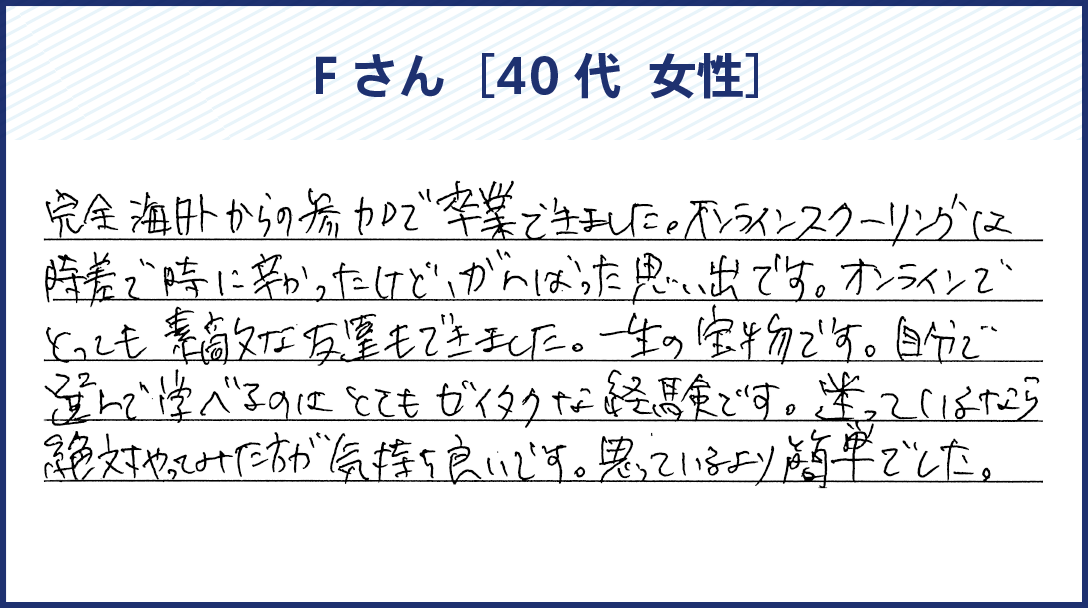 Fさん［40代 女性］
完全海外からの参加で卒業できました。オンラインスクーリングは
時差で時に辛かったけど、がんばった思い出です。オンラインで
とっても素敵な友達もできました。一生の宝物です。自分で
選んで学べるのはとてもゼイタクな経験です。迷っているなら
絶対やってみた方が気持ち良いです。思っているより簡単でした。